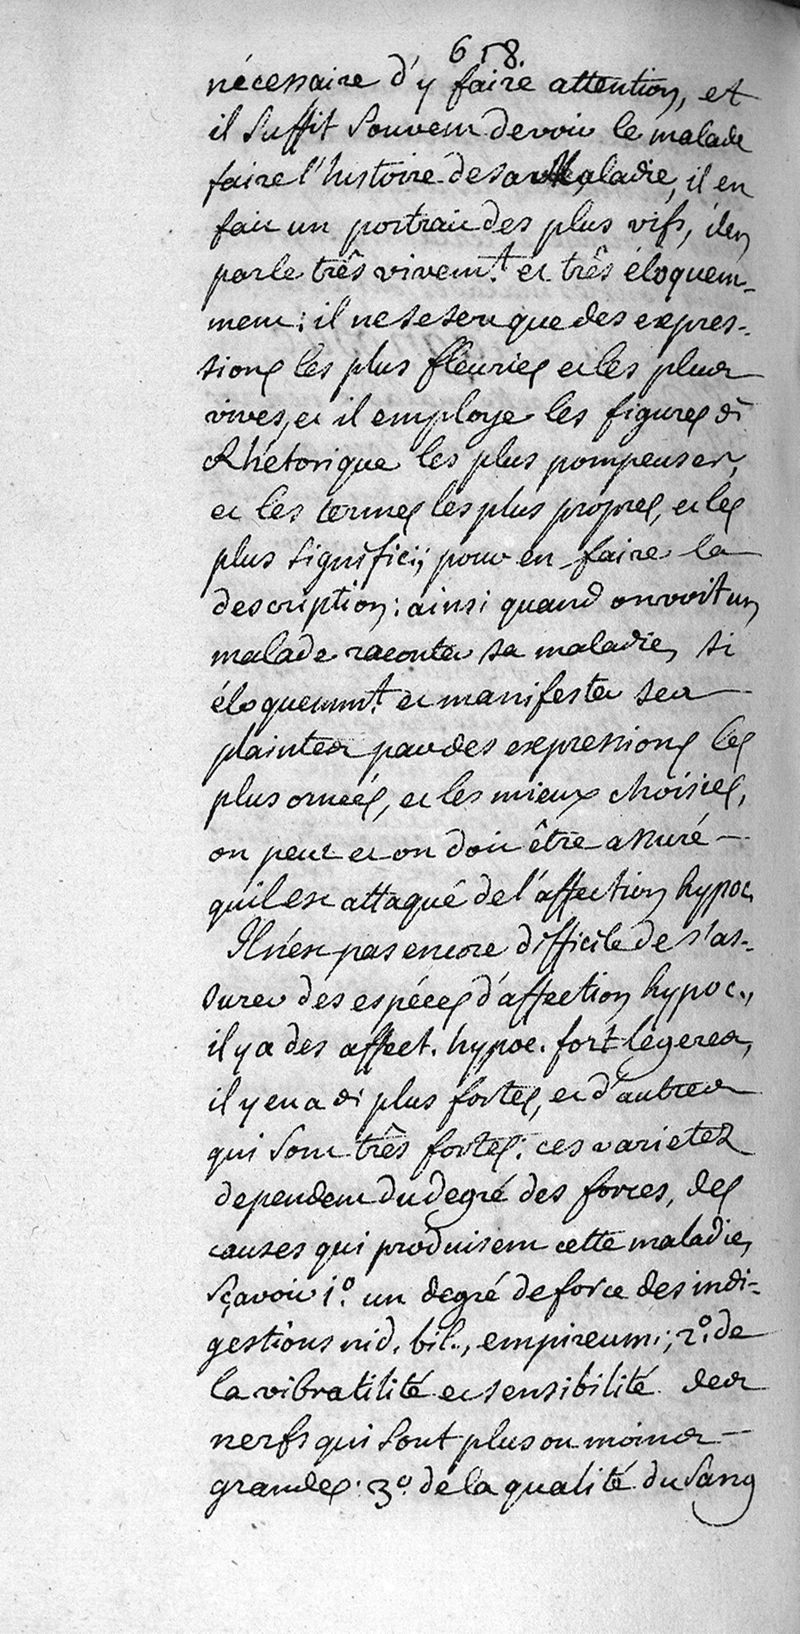 618.
nécessaire d'y faire attention, et
il suffit souvent de voir le malade
faire l'histoire de sa Maladie, il en
fait un portrait des plus vifs, il en
parle três vivem.t et três éloquem-
ment: il ne se sert que des expres-
sions les plus fleuries et les plus
vives, et il employe les figures de
Rhétorique les plus pompeuses,
et les termes les plus propres, et les
plus significtj pour en faire la
description: ainsi quand on voit un
malade raconter sa maladie, si
éloquemmt. et manifester ses
plaintes par des expressions les
plus ornées, et les mieux choisies,
on peut et on doit être assuré
qu'il est attaqué de l'affection hypoc.
Il n'est pas encore difficile de s'as-
surer des espéces d'affection hypoc.,
il y a des affect. hypoc. fort légeres,
il y en a de plus fortes, et d'autres
qui sont três fortes: ces varietez
dependent du degré des forces, des
causes qui produisent cette maladie,
sçavoir 1.º un degré de force des indi-
gestions nid. bil., empireum; 2.º de
la vibratilité et sensibilité des
nerfs qui sont plus ou moins
grandes. 3.º de la qualité du sang